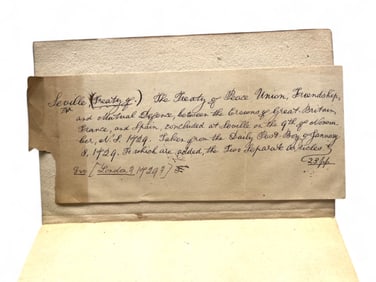 Seville (Treaty of.) The Treaty of Peace Union, Friendship,
and Mutual Defence, between the Crowns of Great Britain,
France, and Spain, concluded at Seville on the 9th of Novem-
ber, N.S. 1729. Taken from the Daily Post Boy of January
8. 1729. To which are added, the Two Separate Articles
23 pp.
8vo [London? 1729?]